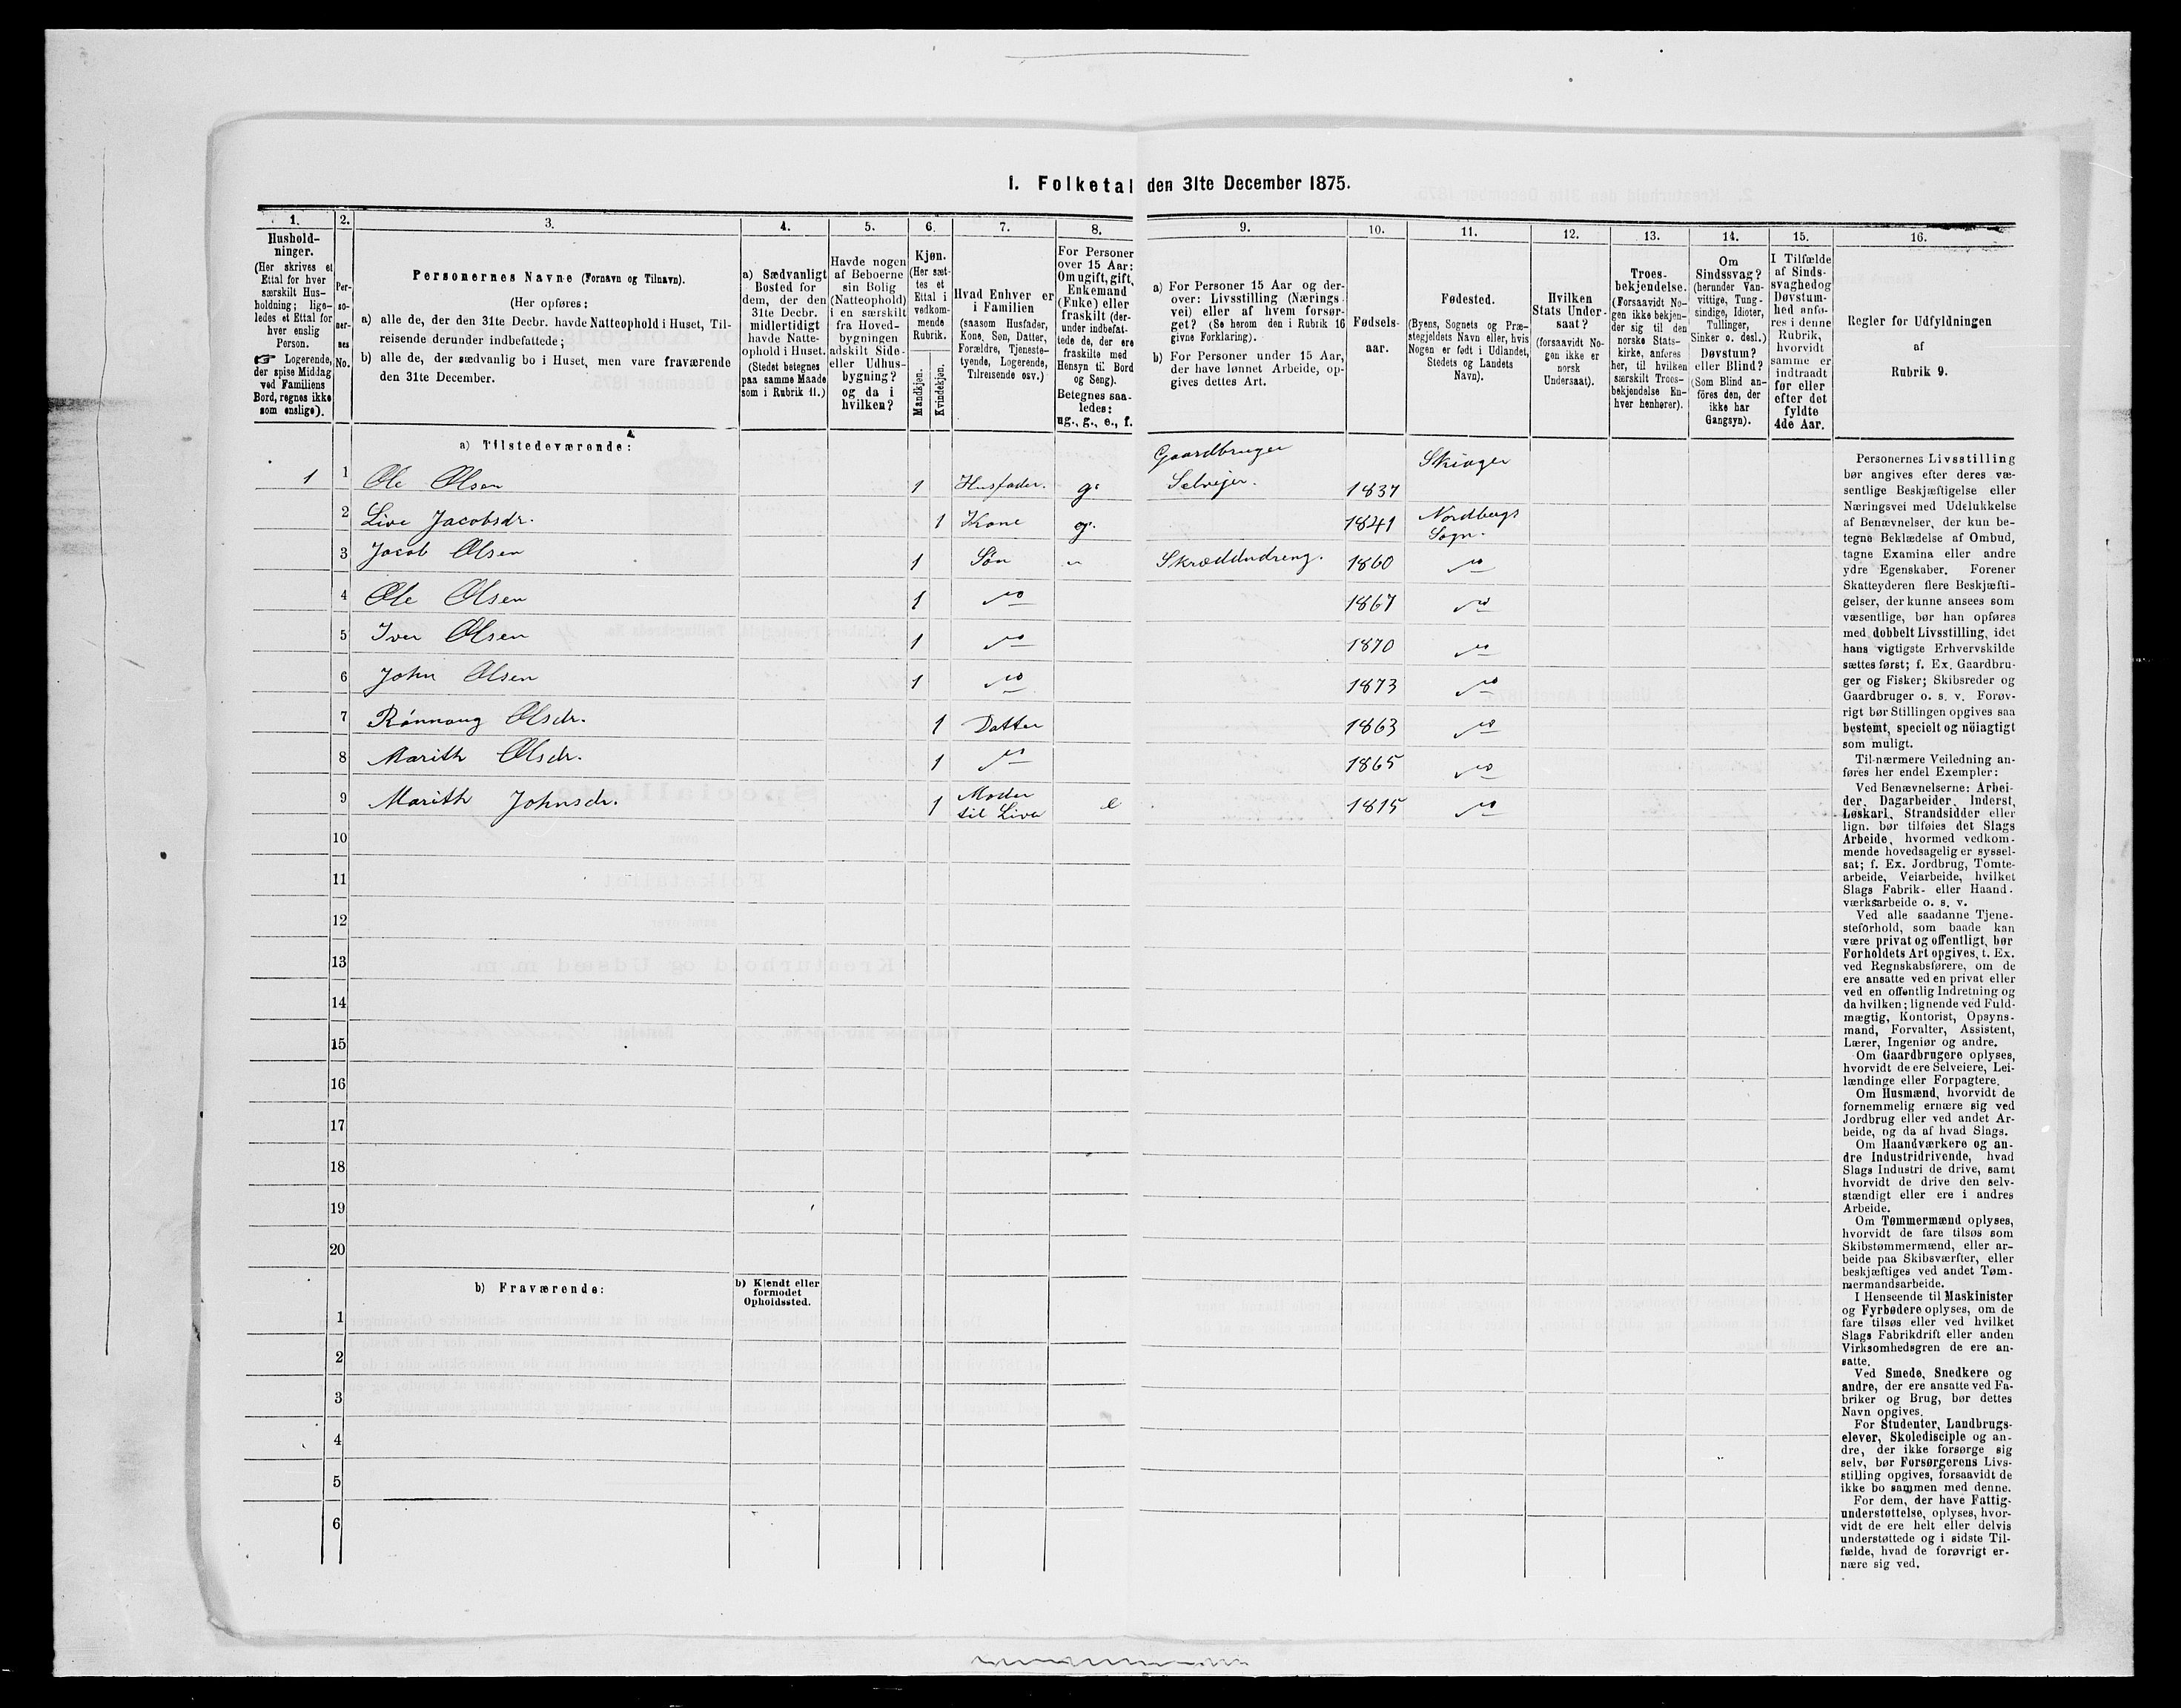 1. Folketal den 31te December 1875.
1. 2. 3. 4. 5. 6. 7. 8. 9. 10. 11. 12. 13. 14. 15. 16.
Hushold-
ninger.
(Her skrives et
Ettal for hver
særskilt Hus-
holdning; lige-
ledes et Ettal for
hver enslig
Person.
☞ Logerende,
der spise Middag
ved Familiens
Bord, regnes ikke
som enslige).
Per-
so-
ner-
nes
No.
Personernes Navne (Fornavn og Tilnavn).
(Her opføres:
a) alle de, der den 31te Decbr. havde Natteophold i Huset, Til-
reisende derunder indbefattede;
b) alle de, der sædvanlig bo i Huset, men vare fraværende
den 31te December.
a) Sædvanligt
Bosted for
dem, der den
31te Decbr.
midlertidigt
havde Natte-
ophold i Huset.
(Stedet betegnes
paa samme Maade
som i Rubrik 11.)
Havde nogen
af Beboerne
sin Bolig
(Natteophold)
i en særskilt
fra Hoved-
bygningen
adskilt Side-
eller Udhus-
bygning?
og da i
hvilken?
Kjøn.
(Her sæt-
tes et
Ettal i
vedkom-
mende
Rubrik.
Mandkjøn.
Kvindekjøn.
Hvad Enhver er
i Familien
(saasom Husfader,
Kone, Søn, Datter,
Forældre, Tjeneste-
tyende, Logerende,
Tilreisende osv.)
For Personer
over 15 Aar:
Om ugift, gift,
Enkemand
(Enke) eller
fraskilt (der-
under indbefat-
tede de, der ere
fraskilte med
Hensyn til Bord
og Seng).
Betegnes saa-
ledes:
ug., g., e., f.
a) For Personer 15 Aar og der-
over: Livsstilling (Nærings-
vei) eller af hvem forsør-
get? (Se herom den i Rubrik 16
givne Forklaring).
b) For Personer under 15 Aar,
der have lønnet Arbeide, op-
gives dettes Art.
Fødsels-
aar.
Fødested.
(Byens, Sognets og Præ-
stegjeldets Navn eller, hvis
Nogen er født i Udlandet,
Stedets og Landets
Navn).
Hvilken
Stats Under-
saat?
(forsaavidt No-
gen ikke er
norsk
Undersaat).
Troes-
bekjendelse.
(Forsaavidt No-
gen ikke bekjen-
der sig til den
norske Stats-
kirke, anføres
her, til hvilken
særskilt Troes-
bekjendelse En-
hver henhører).
Om
Sindssvag?
(herunder Van-
vittige, Tung-
sindige, Idioter,
Tullinger,
Sinker o. desl.)
Døvstum?
eller Blind?
(Som Blind an-
føres den, der
ikke har
Gangsyn).
I Tilfælde
af Sinds-
svaghed og
Døvstum-
hed anfø-
res i denne
Rubrik,
hvorvidt
samme er
indtraadt
før eller
efter det
fyldte
4de Aar.
Regler for Udfyldningen
af
Rubrik 9.
a) Tilstedeværende:
1 1 Ole Olsen 1 Husfader. g. Gaardbruger
Selvejer. 1837 Skiager
2 Live Jacobsdr. 1 Kone g. 1841 Nordbergs
Sogn.
3 Jacob Olsen 1 Søn Skræddudreng. 1860 do
4 Ole Olsen 1 do 1867 do
5 Iver Olsen 1 do 1870 do
6 John Olsen 1 do 1873 do
7 Rønnaug Olsdr. 1 Datter 1863 do
8 Marith Olsdr. 1 do 1865 do
9 Marith Johnsdr. 1 Moder
til Live e 1815 do
10
11
12
13
14
15
16
17
18
19
20
b) Fraværende:
b) Kjendt eller
formodet
Opholdssted.
1
2
3
4
5
6
Personernes Livsstilling
bør angives efter deres væ-
sentlige Beskjæftigelse eller
Næringsvei med Udelukkelse
af Benævnelser, der kun be-
tegne Beklædelse af Ombud,
tagne Examina eller andre
ydre Egenskaber. Forener
Skatteyderen flere Beskjæfti-
gelser, der kunne ansees som
væsentlige, bør han opføres
med dobbelt Livsstilling, idet
hans vigtigste Erhvervskilde
sættes først; f. Ex. Gaardbru-
ger og Fisker; Skibsreder og
Gaardbruger o. s. v. Forøv-
rigt bør Stillingen opgives saa
bestemt, specielt og nöiagtigt
som muligt.
Til nærmere Veiledning an-
føres her endel Exempler:
Ved Benævnelserne: Arbei-
der, Dagarbeider, Inderst,
Løskarl, Strandsidder eller
lign. bør tilføies det Slags
Arbeide, hvormed vedkom-
mende hovedsagelig er syssel-
sat; f. Ex. Jordbrug, Tomte-
arbeide, Veiarbeide, hvilket
Slags Fabrik- eller Haand-
værksarbeide o. s. v.
Ved alle saadanne Tjene-
steforhold, som baade kan
være privat og offentligt, bør
Forholdets Art opgives, t. Ex.
ved Regnskabsførere, om de
ere ansatte ved en privat eller
ved en offentlig Indretning og
da hvilken; lignende ved Fuld-
mægtig, Kontorist, Opsyns-
mand, Forvalter, Assistent,
Lærer, Ingeniør og andre.
Om Gaardbrugere oplyses,
hvorvidt de ere Selveiere, Lei-
lændinge eller Forpagtere.
Om Husmænd, hvorvidt de
fornemmelig ernære sig ved
Jordbrug eller ved andet Ar-
beide, og da af hvad Slags.
Om Haandværkere og an-
dre Industridrivende, hvad
Slags Industri de drive, samt
hvorvidt de drive den selv-
stændigt eller ere i andres
Arbeide.
Om Tømmermænd oplyses,
hvorvidt de fare tilsøs som
Skibstømmermænd, eller ar-
beide paa Skibsværfter, eller
beskjæftiges ved andet Tøm-
mermandsarbeide.
I Henseende til Maskinister
og Fyrbødere oplyses, om de
fare tilsøs eller ved hvilket
Slags Fabrikdrift eller anden
Virksomhedsgren de ere an-
satte.
Ved Smede, Snedkere og
andre, der ere ansatte ved Fa-
briker og Brug, bør dettes
Navn opgives.
For Studenter, Landbrugs-
elever, Skoledisciple og an-
dre, der ikke forsørge sig
selv, bør Forsørgerens Livs-
stilling opgives, forsaavidt de
ikke bo sammen med denne.
For dem, der have Fattig-
understøttelse, oplyses, hvor-
vidt de ere helt eller delvis
understøttede og i sidste Til-
fælde, hvad de forøvrigt er-
nære sig ved.